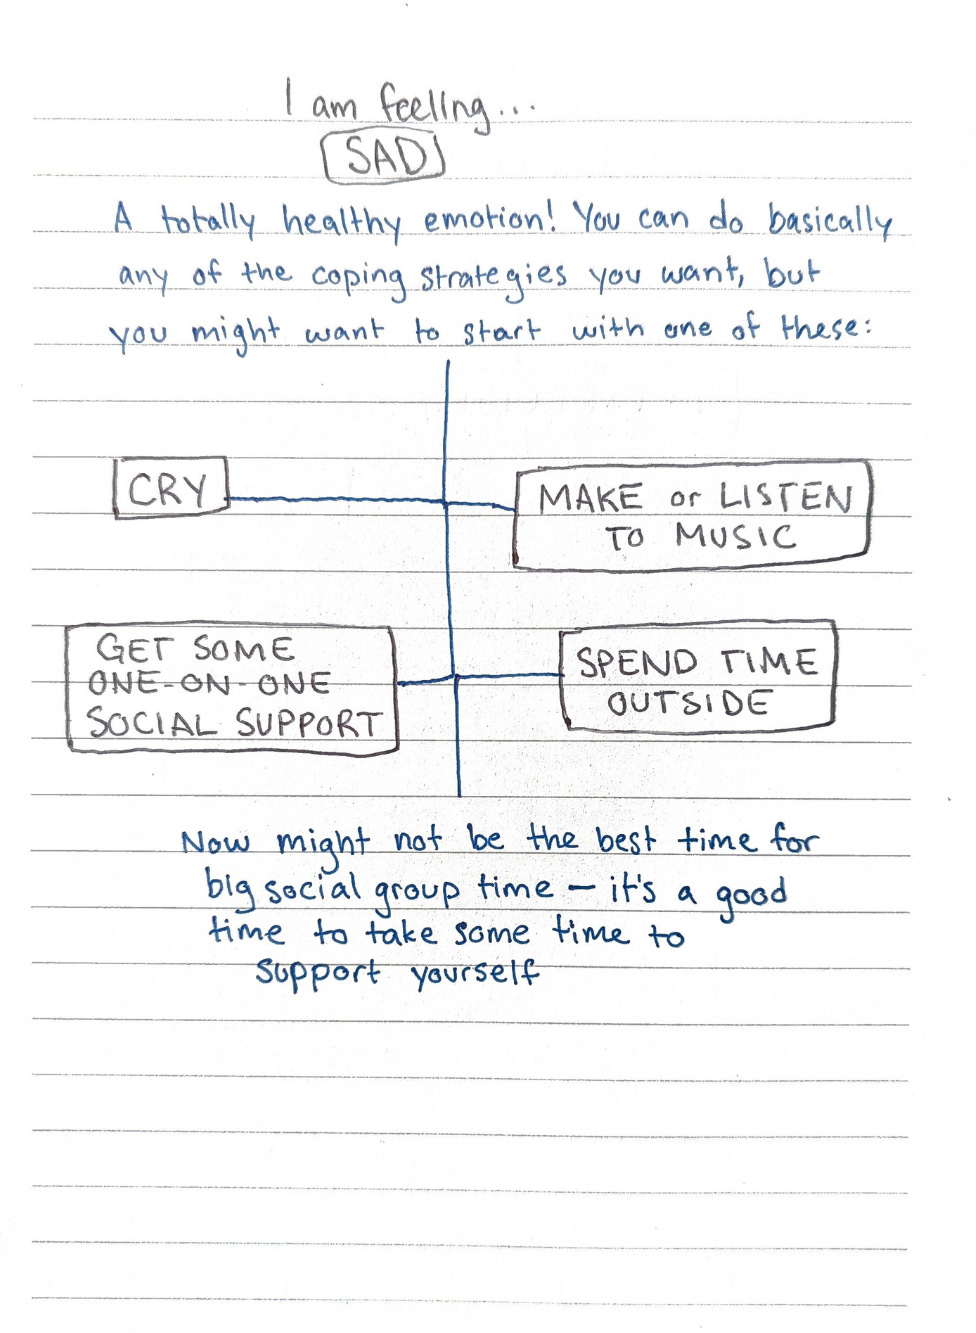 I am feeling...
SAD
A totally healthy emotion! You can do basically
any of the coping strategies you want, but
you might want to start with one of these:
CRY
MAKE or LISTEN
TO MUSIC
GET SOME
ONE-ON-ONE
SOCIAL SUPPORT
SPEND TIME
OUTSIDE
Now might not be the best time for
big social group time – it's a good
time to take some time to
support yourself